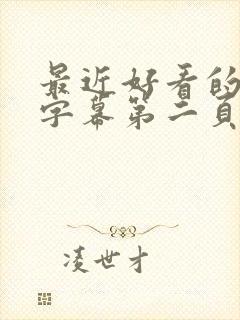 最近好看的
字幕第二頁
凌世才